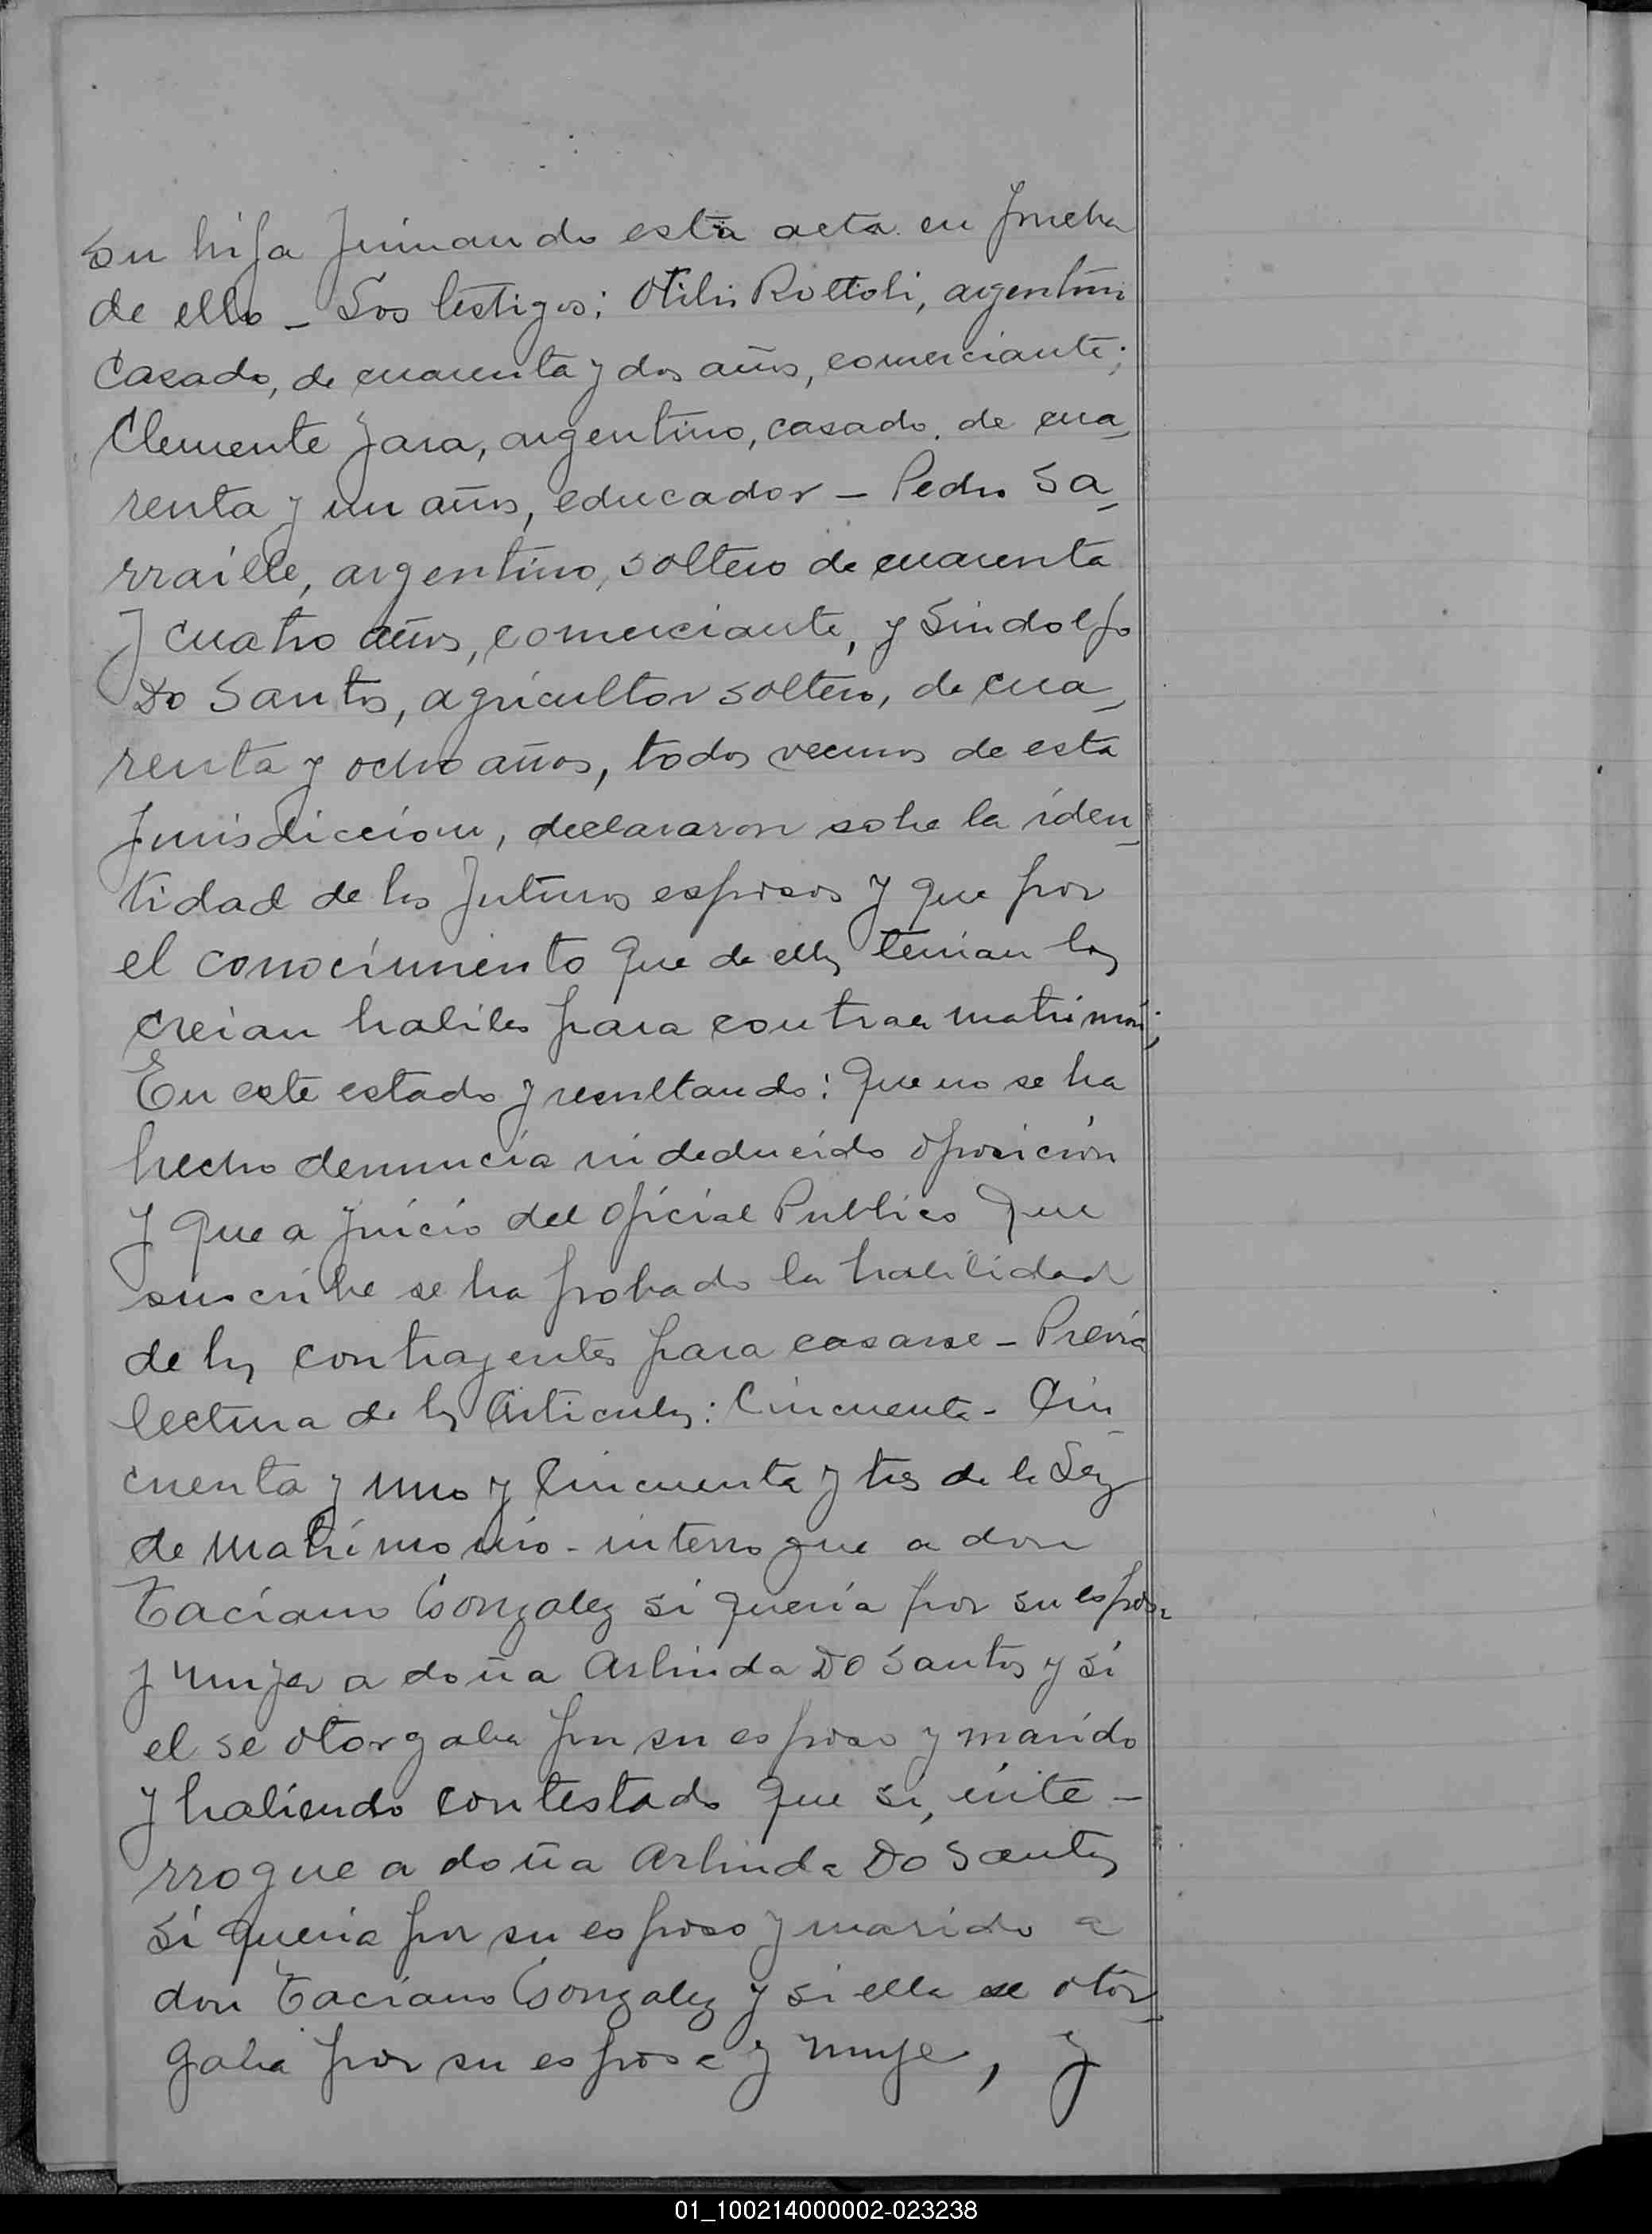 su hija firmando esta acta en prueba
de ello - Los testigos; Otilio Rottoli, argentino
casado, de cuarenta y dos años, comerciante;
Clemente Jara, argentino, casado, de cua-
renta y un años, educador - Pedro Sa-
rraille, argentino, soltero de cuarenta
y cuatro años, comerciante, y Lindolfo
Do Santos, agricultor soltero, de cua-
renta y ocho años, todos vecinos de esta
jurisdiccion, declararon sobre la iden-
tidad de los futuros esposos y que por
el conocimiento que de ellos tenian los
creian habiles para contraer matrimoni;
En este estado y resultando: que no se ha
hecho denuncia ni deducido oposición
y que a juicio del oficial Publico que
suscribe se ha probado la habilidad
de los contrayentes para casarse - Previa
lectura de los Articulos: Cincuenta - Cin-
cuenta y uno y Cincuenta y tres de la Ley
de Matrimonio - interrogue a don
Taciano Gonzalez si queria por su esposa
y mujer a doña Arlinda Do Santos y si
el se otorgaba por su esposo y marido
y habiendo contestado que si, inte-
rrogue a doña Arlinda Do Santos
si queria por su esposo y marido a
don Taciano Gonzalez y si ella se otor-
gaba por su esposa y muje, y
01_100214000002-023238